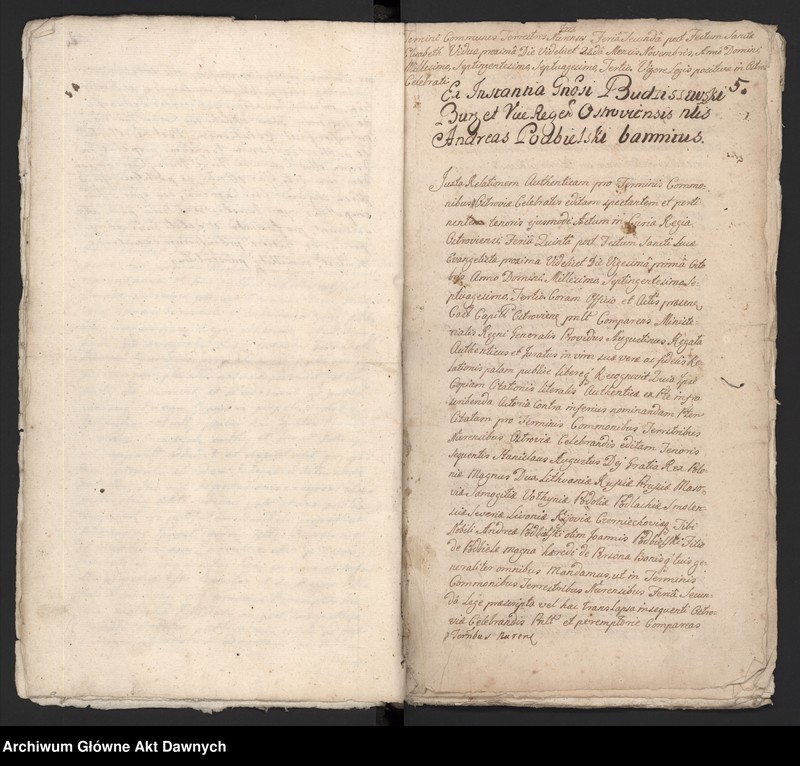 Termini Communes Terrestres Nurenses Feria Secunda post Festum Sanctæ
Elisabeth Viduæ proxima Die Videlicet Mensis Novembris, Anno Domini
Millesimo, Septingentesimo, Septuagesimo, Tertio Vigore Legis positivæ in
Celebrati
5.
Ex Instantia Gnosi Budziszewski
Burg et Vice Regen Ostroviensis nlis
Andreas Podbielski bannitus.
Juxta Relationem Authenticam pro Terminis Commo-
nibus Ostroviæ Celebratis editam spectantem et perti-
nentem tenoris ejusmodi Actum in Curia Regia
Ostroviensi, Feria Quinta post Festum Sancti Lucæ
Evangelistæ proxima Videlicet Die Vigesima prima Octo-
bris Anno Domini, Millesimo, Septingentesimo, Se-
ptuagesimo, Tertio Coram Officio et Actis præsen
Capit Ostrovien Comparens Ministe-
rialis Regni Generalis Providus Augustinus Rẹgala
Authenticus et Juratus in vim suæ veræ ac fidelis Re-
lationis palam publice libere Recognovit Quia ipse
Copiam Citationis literalis Authenticæ ex Pte infra
scribenda Actorea Contra inferius nominandam Pten
Citatam pro Terminis Commonibus Terrestribus
Nurensibus Ostroviæ Celebrandis editam Tenoris
sequentis Stanislaus Augustus Dej Gratia Rex Polo-
niæ Magnus Dux Lithvaniæ Russiæ Prussiæ Maso-
viæ Samogitiæ Vołhyniæ Podoliæ Podlachiæ Smolen-
sciæ Severiæ Livoniæ Kijoviæ Czerniechoviæq Tibi
Nobili Andreæ Podbielski olim Joannis Podbielski Filio
de Podbiele magna hæredi de Persona Bonisq tuis ge-
neraliter omnibus Mandamus, ut in Terminis
Commonibus Terrestribus Nurensibus Feria Secun-
da Lege præscripta vel hac translapsa insequenti Ostro-
viæ Celebrandis et peremptorie Compareas